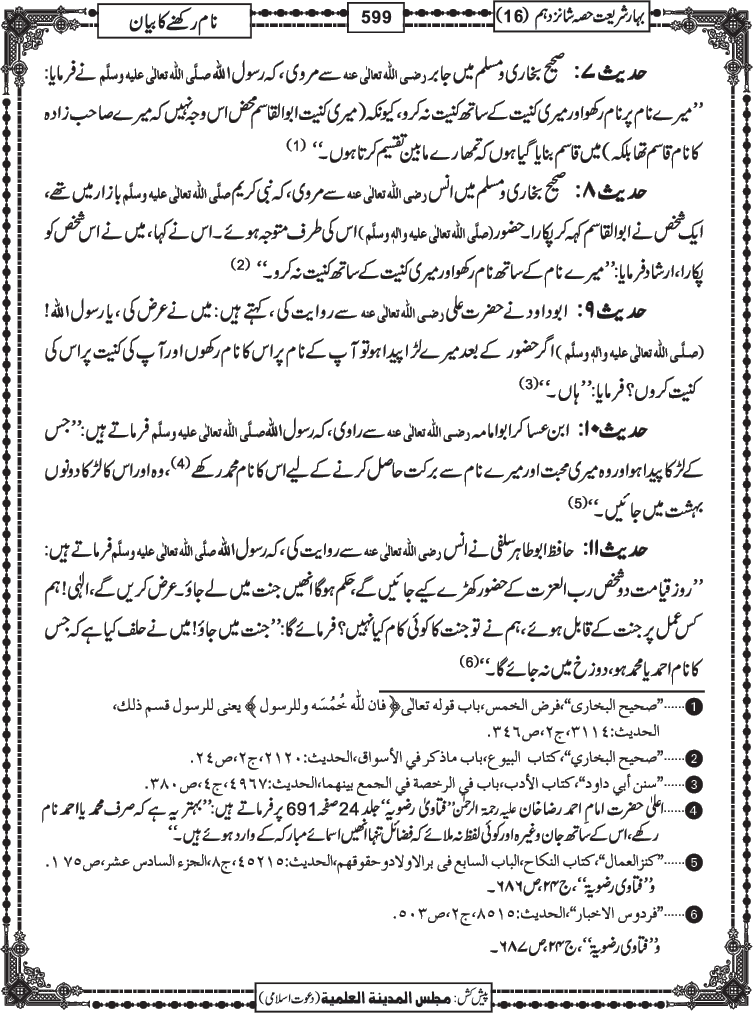 بہارِشریعت حصہ شانزدہم (16)
599
نام رکھنے کا بیان
حدیث ۷: صحیح بخاری و مسلم میں جابر رضی اللہ تعالٰی عنہ سے مروی، کہ رسول اﷲ صلَّی اللہ تعالٰی علیہ وسلَّم نے فرمایا:
’’میرے نام پر نام رکھو اور میری کنیت کے ساتھ کنیت نہ کرو، کیونکہ (میری کنیت ابوالقاسم محض اس وجہ نہیں کہ میرے صاحب زادہ
کا نام قاسم تھا بلکہ) میں قاسم بنایا گیا ہوں کہ تمھارے مابین تقسیم کرتا ہوں۔‘‘ (1)
حدیث ۸: صحیح بخاری و مسلم میں انس رضی اللہ تعالٰی عنہ سے مروی، کہ نبی کریم صلَّی اللہ تعالٰی علیہ وسلَّم بازار میں تھے،
ایک شخص نے ابوالقاسم کہہ کر پکارا۔ حضور (صلَّی اللہ تعالٰی علیہ والہٖ وسلَّم) اس کی طرف متوجہ ہوئے۔ اس نے کہا، میں نے اس شخص کو
پکارا، ارشاد فرمایا: ’’میرے نام کے ساتھ نام رکھو اور میری کنیت کے ساتھ کنیت نہ کرو۔‘‘ (2)
حدیث ۹: ابوداود نے حضرت علی رضی اللہ تعالٰی عنہ سے روایت کی، کہتے ہیں: میں نے عرض کی، یارسول اﷲ!
(صلَّی اللہ تعالٰی علیہ والہٖ وسلَّم) اگر حضور کے بعد میرے لڑا پیدا ہو تو آپ کے نام پر اس کا نام رکھوں اور آپ کی کنیت پر اس کی
کنیت کروں؟ فرمایا: ’’ہاں۔‘‘ (3)
حدیث ۱۰: ابن عساکر ابو امامہ رضی اللہ تعالٰی عنہ سے راوی، کہ رسول اﷲ صلَّی اللہ تعالٰی علیہ وسلَّم فرماتے ہیں: ’’جس
کے لڑکا پیدا ہو اور وہ میری محبت اور میرے نام سے برکت حاصل کرنے کے لیے اس کا نام محمد رکھے (4)، وہ اور اس کا لڑکا دونوں
بہشت میں جائیں۔‘‘ (5)
حدیث ۱۱: حافظ ابوطاہر سلفی نے انس رضی اللہ تعالٰی عنہ سے روایت کی، کہ رسول اﷲ صلَّی اللہ تعالٰی علیہ وسلَّم فرماتے ہیں:
’’روز قیامت دو شخص رب العزت کے حضور کھڑے کیے جائیں گے، حکم ہوگا انھیں جنت میں لے جاؤ۔ عرض کریں گے، الٰہی! ہم
کس عمل پر جنت کے قابل ہوئے، ہم نے تو جنت کا کوئی کام کیا نہیں؟ فرمائے گا: ’’جنت میں جاؤ! میں نے حلف کیا ہے کہ جس
کا نام احمد یا محمد ہو، دوزخ میں نہ جائے گا۔‘‘ (6)
1 ......”صحیح البخاری“، فرض الخمس، باب قولہ تعالٰی ﴿ فان للّٰہ خُمُسَہ وللرسول ﴾ یعنی للرسول قسم ذلك،
الحدیث: ۳۱۱٤، ج۲، ص۳٤٦.
2 ......”صحیح البخاری“، کتاب البیوع، باب ماذکر فی الأسواق، الحدیث: ۲۱۲۰، ج۲، ص۲٤.
3 ......”سنن أبي داود“، کتاب الأدب، باب فی الرخصة فی الجمع بینھما، الحدیث: ٤۹٦۷، ج٤، ص۳۸۰.
4 ......اعلٰی حضرت امام احمد رضا خان علیہ رحمۃ الرحمٰن ’’فتاویٰ رضویہ‘‘ جلد 24 صفحہ 691 پر فرماتے ہیں: ’’بہتر یہ ہے کہ صرف محمد یا احمد نام
رکھے، اس کے ساتھ جان وغیرہ اور کوئی لفظ نہ ملائے کہ فضائل تنہا انھیں اسمائے مبارکہ کے وارد ہوئے ہیں۔‘‘
5 ......”کنزالعمال“، کتاب النکاح، الباب السابع فی برالاولاد وحقوقھم، الحدیث: ٤۵۲۱۵، ج۸، الجزء السادس عشر، ص۱۷۵.
و’’فتاوی رضویۃ‘‘، ج۲۴، ص۶۸۶۔
6 ......”فردوس الاخبار“، الحدیث: ۸۵۱۵، ج۲، ص۵۰۳.
و’’فتاوی رضویۃ‘‘، ج۲۴، ص۶۸۷۔
پیش کش: مجلس المدینة العلمیة (دعوت اسلامی)